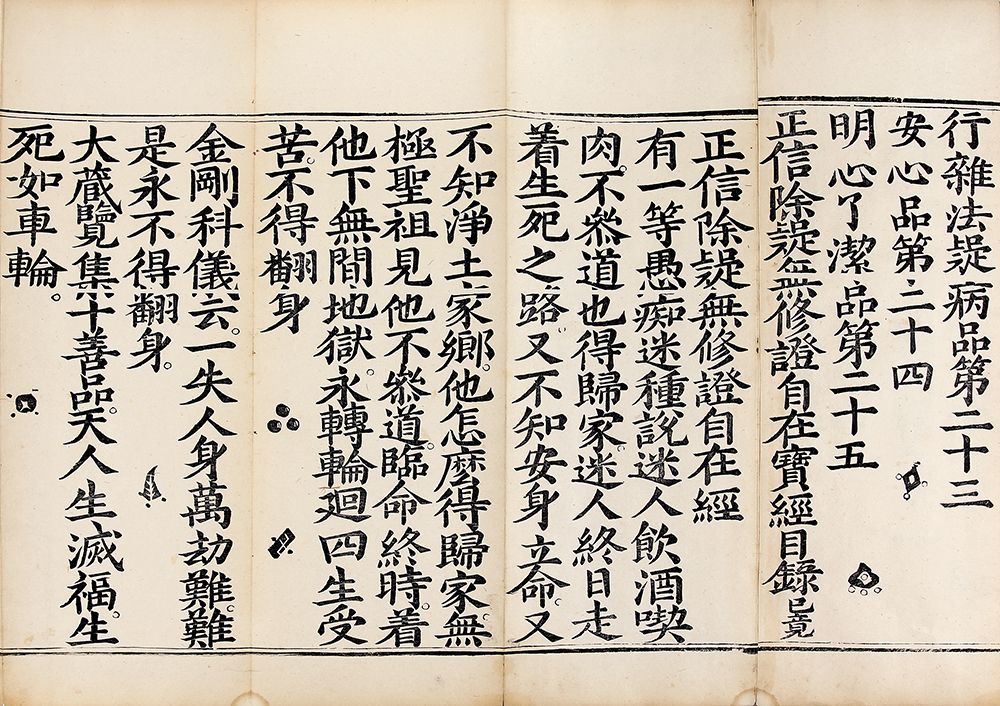 行雜法疑病品第二十三
安心品第二十四
明心了潔品第二十五
正信除疑無修證自在寶經目錄已竟
正信除疑無修證自在經
有一等愚痴迷種說迷人飲酒喫
肉。不叅道也得歸家。迷人終日走
着生死之路。又不知安身立命。又
不知淨土家鄉。他怎麼得歸家。無
極聖祖見他不叅道。臨命終時。着
他下無間地獄。永轉輪廻。四生受
苦。不得翻身
金剛科儀云。一失人身萬劫難。難
是永不得翻身。
大藏覽集十善品。天人生滅福。生
死如車輪。